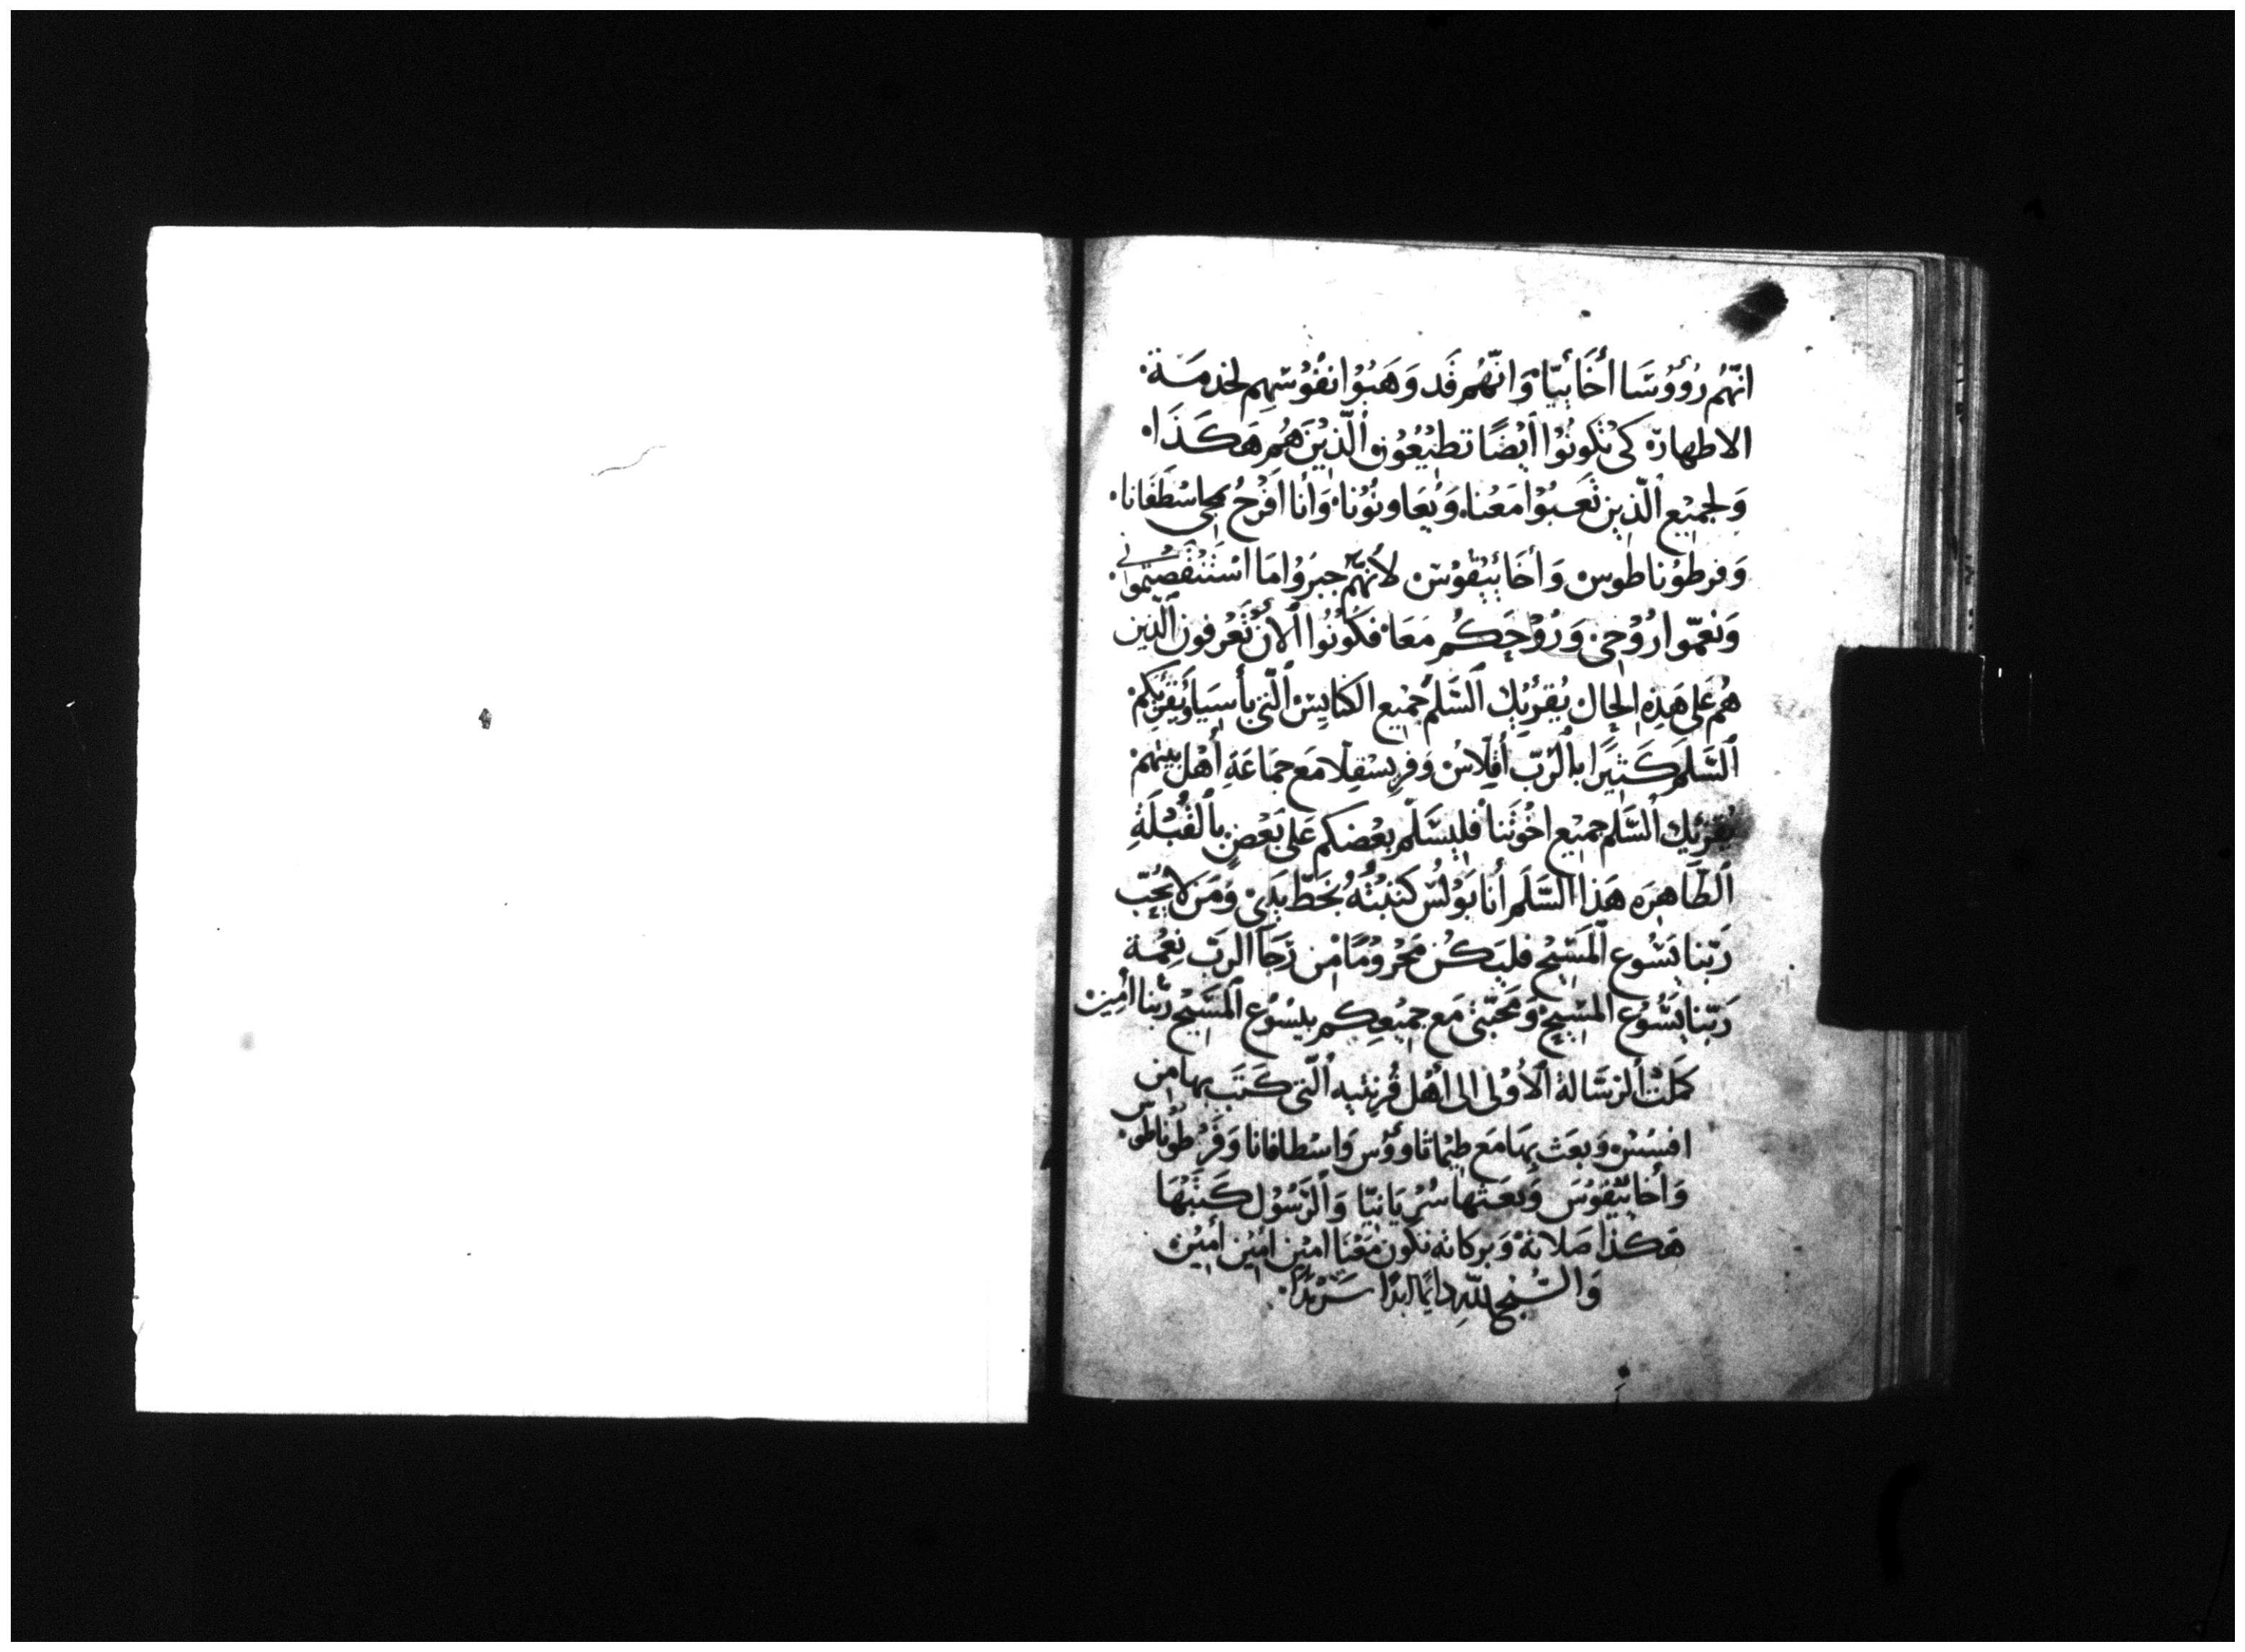 انّهُم رُؤوُسَا أخَائيّا وَانّهُم قَد وَهَبُوْا نفُوُسَهِم لخدمَة
الاطهارة كى تكونُوْا أيْضًا تطيْعُوْن ٱلّذيْنَ هُم هَكَذَا
وَلجميْع ٱلّذين تَعَبُوْا مَعْنا وَيُعَاونُوُنا وَانَا افَرحُ بمجى اسْطَفَانا
وَفرطوُناطوس وَأخَائيْقوُسْ لأنهّمُ جبرَوُا مَا اسْتَنْقَصتمُونى
وَنعمّوا رُوْحى وَرُوْحَكُم مَعَا فكوُنُوا ٱلأنْ تَعْرفون ٱلّذين
هُم عَلى هَذِهِ الحَال يُقرئِك ٱلسَّلم جَميْع الكنايسْ ٱلّتى بأسيَا وَيُقرِيكم
ٱلسَّلمَ كَثيرًا بٱلرّبّ أقِلّاسْ وَفرِيسْقِلّا مَع جمَاعَةِ أهْل بيتهم
يُقرئِك ٱلسَّلم جميْع اخْوتَنا فليسَلّم بعْضكم عَلى بَعْضٍ بٱلقُبْلَةِ
ٱلطّاهِرَه هَذَا ٱلسَّلَم أنا بَوْلُسْ كتبْتُهُ بخَطّ يَدِىْ وَمَن لا يُحِبّ
رَبّنا يَسُوع ٱلمَسّيْح فليَكُن مَحْرُوْمًا مْن رَجَآ الرَبّ نِعْمْة
رَبّنا يَسُوْع المسّيْحْ وَمَحبّتى مَع جميْعِكم بيسُوْع ٱلمسّيْح رَبّنا أمين
كملَتْ ٱلرسَالهْ ٱلأوْلى الى أهْل قُرنتيه ٱلّتى كَتَبَ بها من
افسسْ وَبعَث بهَا مَع طيْمَاتَاوؤس وَاسْطافانا وَفَرْطوُناطوس
وَأخايْقوُس وَبعَثها سُرْيَانيّا وَٱلرّسُوْل كَتَبْهَا
هَكذا صَلاتهْ وَبركاته تكون مَعْنَا اميْن اميْن أميْن
وَالسُّبْح للّهِ دَايمًا ابدًا سَرْمَدًا